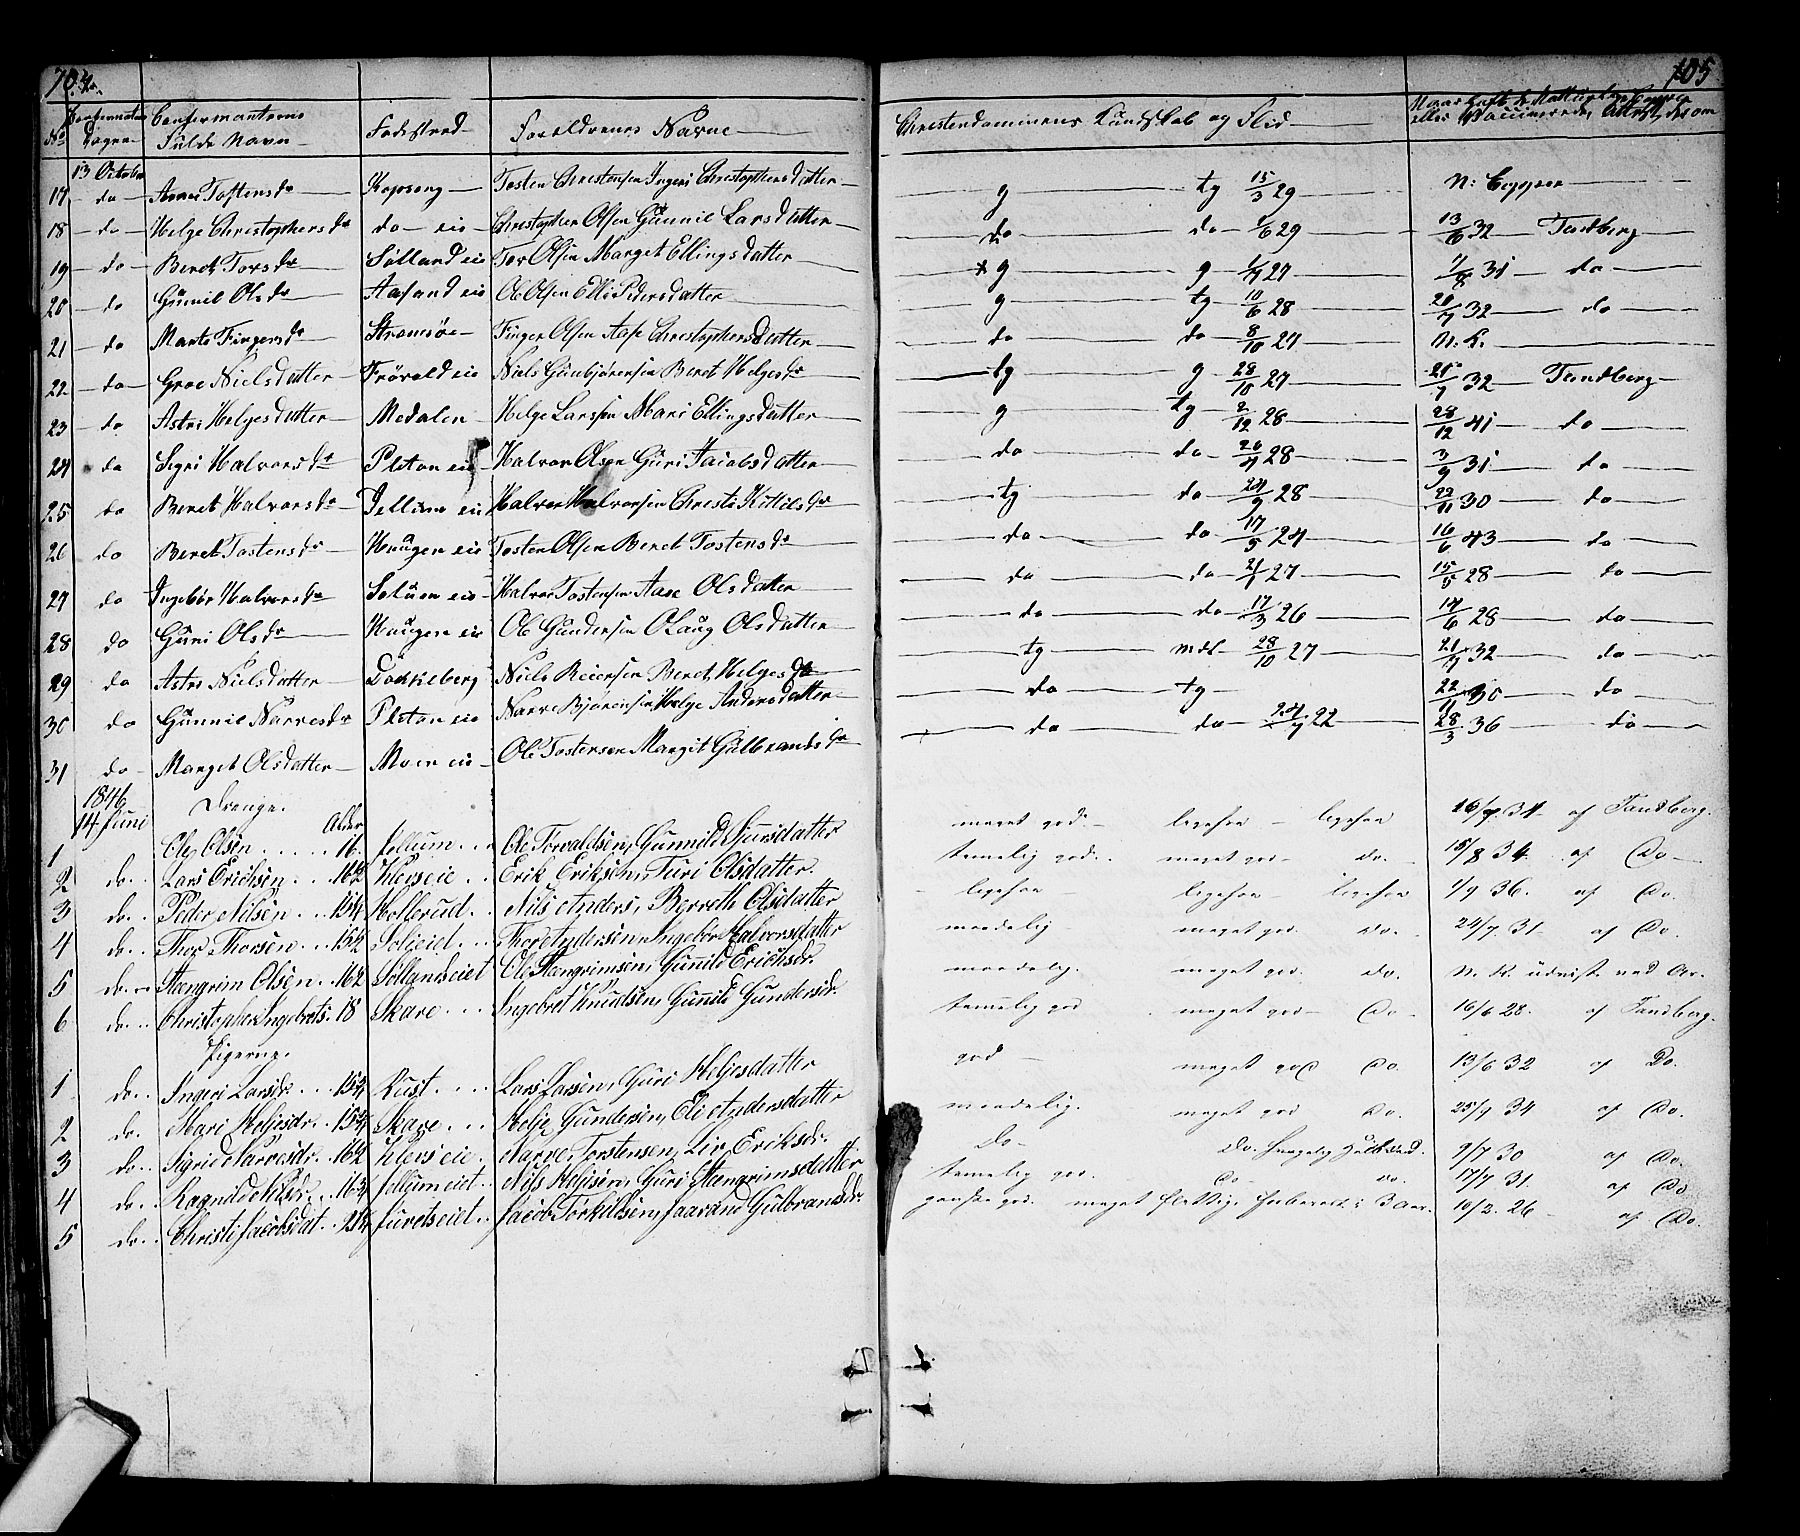 104. 105
No Confirmations Dagen Confirmantens Fulde Navn Fødested Forældrenes Navne Christendommens Kundskab og Flid eller Vaccinerede, Attest derom
13 October
17 do Anne Tostensdr Kopseng Tosten Christensen Ingeri Christophersdatter g tg 15/3 29 N: Copper
18 do Helge Christophersdr do eie Christopher Olsen Gunnil Larsdatter do do 1/6 29 13/6 32 Tandberg
19 do Beret Torsdr Solland eie Tor Olsen Marget Ellingsdatter g g 27 31 do
20 do Gunnil Olsdr Aasand eie Ole Olsen Elli Pedersdatter g tg 10/6 28 32 do
21 do Marte Fingersdr Stromsøe Finger Olsen Aase Christophersdatter do do 8/10 27 N. K.
22 do Groe Nielsdatter Frövold eie Niels Gunbjörensen Beret Helgesdr tg g 28/10 27 21/7 32 Tandberg
23 do Astri Helgesdatter Medalen Helge Larssen Mari Ellingsdatter g tg 2/12 28 28/12 41 do
24 do Sigri Halvorsdr Pletan eie Halvor Olsen Guri Jacobsdatter do do 26/4 28 3/9 31 do
25 do Beret Halvorsdr Jellum eie Halvor Halvorsen Christi Kittilsdr tg do 24/9 28 22/11 30 do
26 do Beret Tostensdr Haugen eie Tosten Olsen Beret Tostensdr do do 17/5 24 16/6 43 do
27 do Ingebör Halvorsdr Solum eie Halvor Tostensen Aase Olsdatter do do 21/1 27 15/5 28 do
28 do Guni Olsdr Haugen eie Ole Gundersen Olaug Olsdatter do do 17/3 26 14/6 28 do
29 do Astri Nielsdatter Dokkeberg Niels Reiersen Beret Helgesdr tg mdl 28/10 27 21/7 32 do
30 do Gunnil Narvesdr Pletan eie Narve Bjørensen Helge Andersdatter do tg 22/11 30 do
31 do Marget Olsdatter Moen eie Ole Tostensen Margit Gulbrandsdr do do 24/7 22 28/3 36 do
1846
14 Juni Drenge. Alder
1 Ole Olsen 16. Jellum Ole Torvaldsen, Gunnild Sjursdatter meget god. ligesaa ligesaa 34 af Tandberg.
2 do. Lars Erichsen 16½ Kleiveie Erik Eriksen, Turi Olsdatter. temelig god. meget god do. 15/8 34. af Do
3 do. Peder Nilsen 15¼ Hollerud Nils Anders, Berreth Olsdatter ligesaa ligesaa ligesaa 1/9 36. af Do.
4 do. Thor Thorsen 15½ Soljeiet Thor Andersen, Ingebör Halvorsdatter maadelig meget god do. 24/7. 31. af Do.
5 do. Stengrim Olsen 16½ Sollandseiet Ole Stengrimsen, Gunild Erichsdr. maadelig. meget god. do. N. K. udvist ved
6 do. Christopher Ingebrets. 18 Skare Ingebret Knudsen, Gunild Gundersdr. temelig god meget god Do 16/6 28. af Tandberg.
Pigerne.
1 do. Ingeri Larsdr. 15¾ Rust Lars Larsen, Guri Heljesdatter god meget god Do. 13/6 32 af Do.
2 do. Mari Heljesdr. 15¼ Skare Helje Gundersen, Eli Andersdatter maadelig. meget god Do. 25/7 34 af Do.
3 do. Sigrid Narvesdr. 16½ Kleiveie Narve Torstensen, Liv Eriksdr. do Do. 9/7 30 af Do.
4 do. Ragnild Nilsdr. 16¾ Jellumeiet Nils Heljesen, Guri Stengrimsdatter temelig god. do do. 17/7 31. af Do
5 do. Christi Jacobsdat. Juvetseiet Jacob Torkildsen, Jaarand Gulbrandsdr. ganske god. meget flittig, forberedt i 3 Aar. 10/2. 26 af Do.